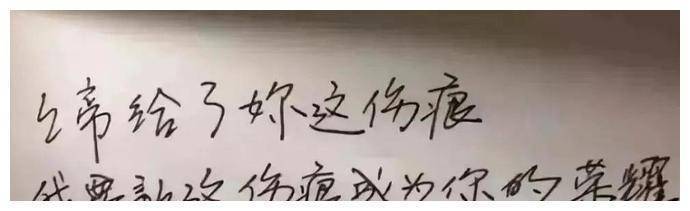 上帝给了妳这伤痕
我要 伤痕成为你的荣耀